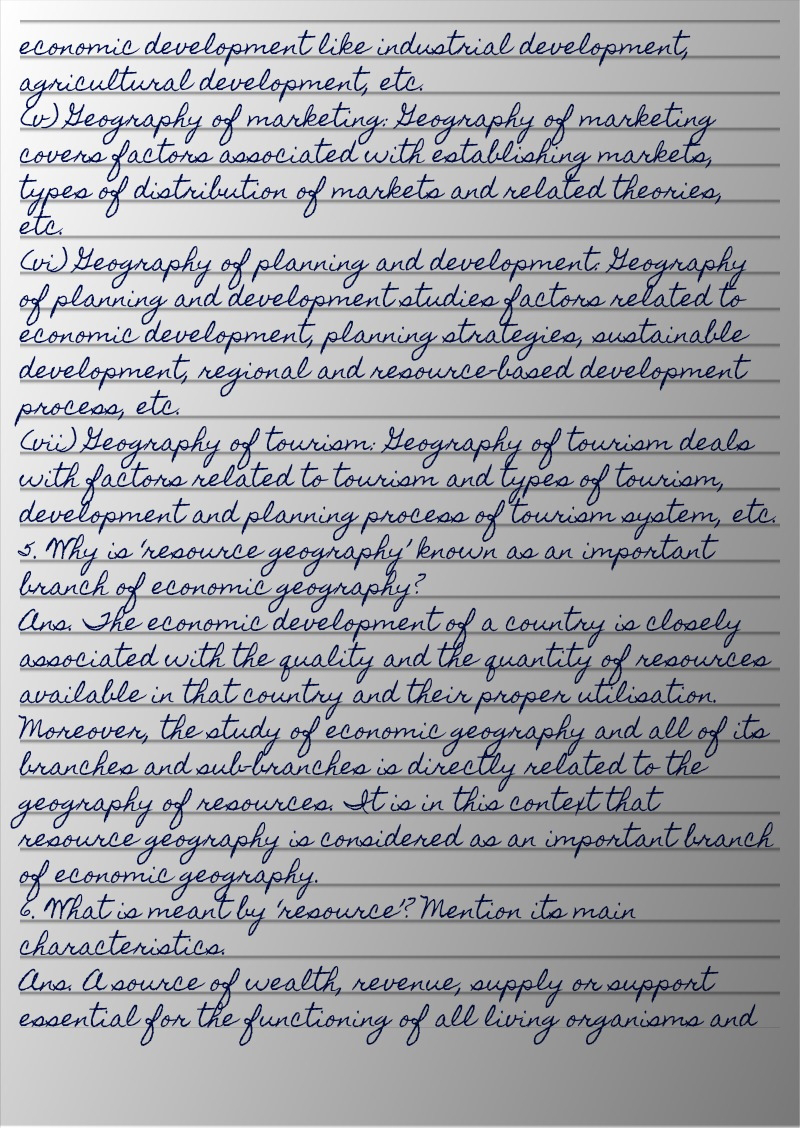 economic development like industrial development,
agricultural development, etc.
(v) Geography of marketing: Geography of marketing
covers factors associated with establishing markets,
types of distribution of markets and related theories,
etc.
(vi) Geography of planning and development: Geography
of planning and development studies factors related to
economic development, planning strategies, sustainable
development, regional and resource-based development
process, etc.
(vii) Geography of tourism: Geography of tourism deals
with factors related to tourism and types of tourism,
development and planning process of tourism system, etc.
5. Why is 'resource geography' known as an important
branch of economic geography?
Ans. The economic development of a country is closely
associated with the quality and the quantity of resources
available in that country and their proper utilisation.
Moreover, the study of economic geography and all of its
branches and sub-branches is directly related to the
geography of resources. It is in this context that
resource geography is considered as an important branch
of economic geography.
6. What is meant by 'resource'? Mention its main
characteristics.
Ans. A source of wealth, revenue, supply or support
essential for the functioning of all living organisms and